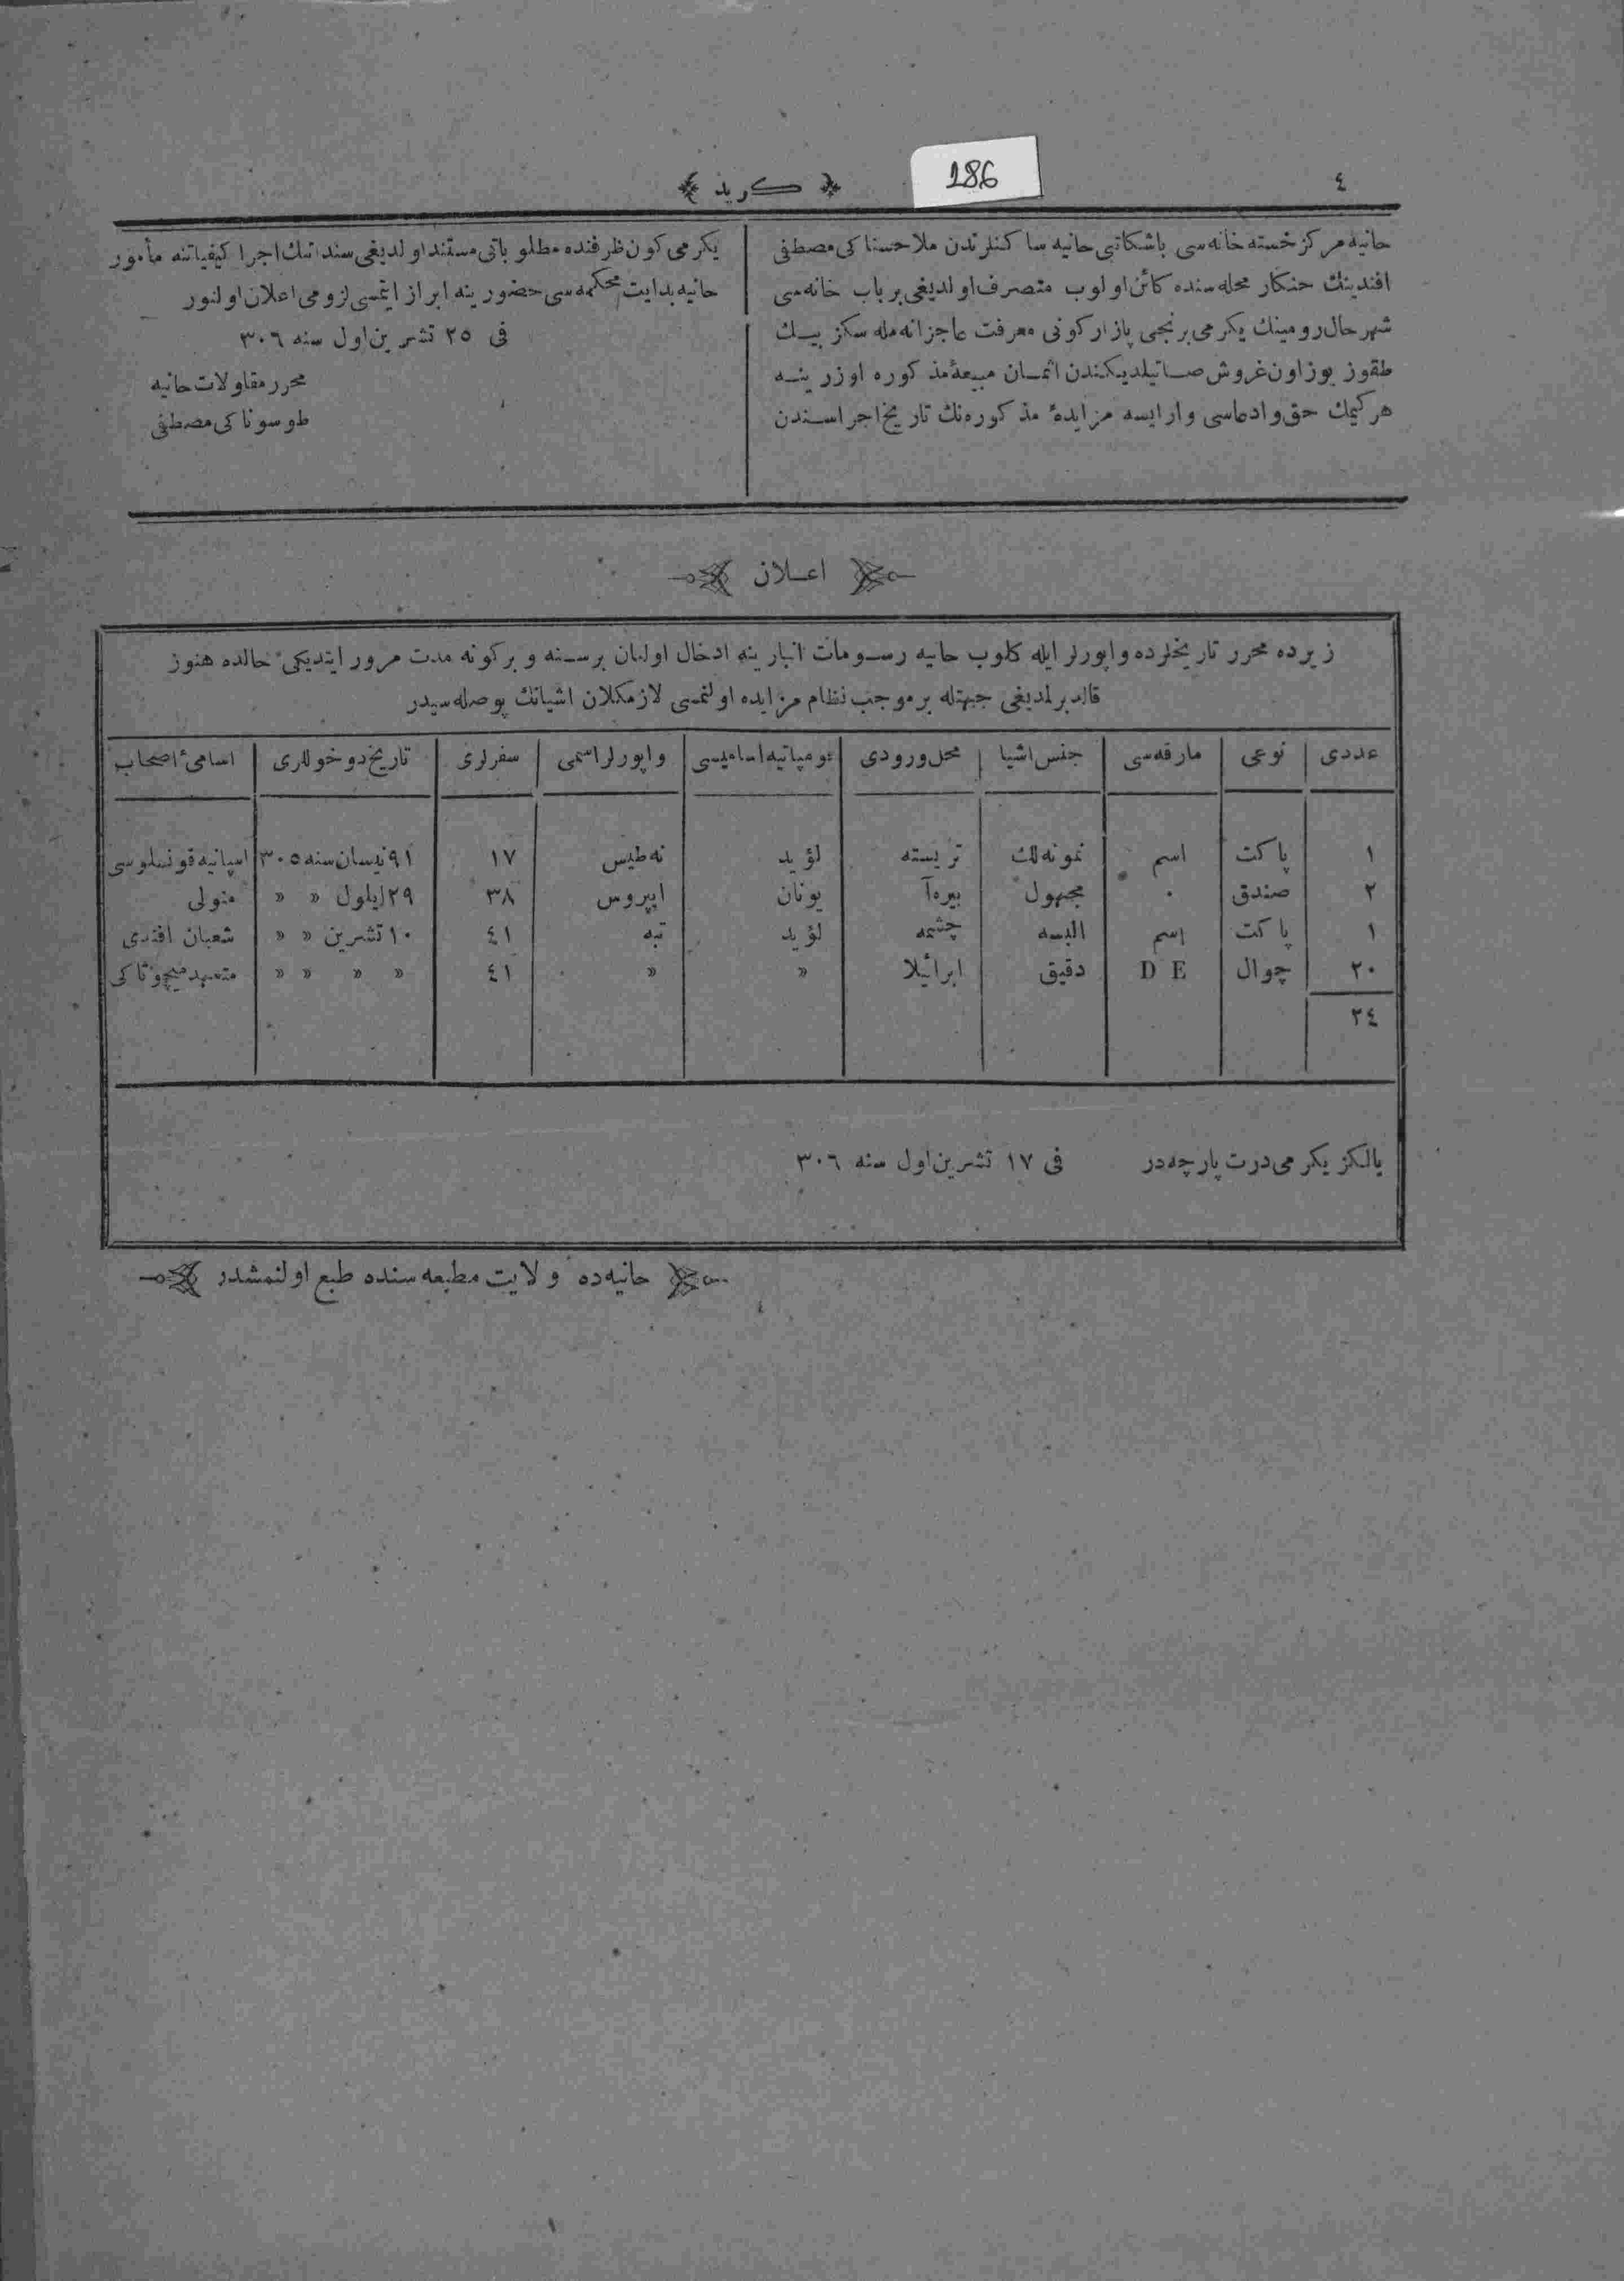 ٤
186
كريد
حانيه مركز خسته خانه‌سی باشكاتبی حانيه ساكنلرندن ملا حسناكی مصطفی
افندينك حنكار محله‌سنده كائن اولوب متصرف اولديغی برباب خانه‌سی
شهر حال روميك يكرمی برنجی پازار كونی معرفت عاجزانه‌مله سكز بيك
طقوز يوز اون غروش صاتيلديكندن اثمان مبيعهٔ مذكوره اوزرينه
هر كيمك حق وادعاسی وارايسه مزايدهٔ مذكوره‌نك تاريخ اجراسندن
يكرمی كون ظرفنده مطلوباتی مستند اولديغی سنداتك اجرا كيفياتنه مأمور
حانيه بدايت محكمه‌سی حضورينه ابراز ايتمسی لزومی اعلان اولنور
فی ٢٥ تشرين اول سنه ٣٠٦
محرر مقاولات حانيه
طوسوناكی مصطفی
اعلان
زيرده محرر تاريخلرده واپورلر ايله كلوب حانيه رسومات انبارينه ادخال اولنان برسنه و بركونه مدت مرور ايتديكی حالده هنوز
قالدرلمديغی جهتله برموجب نظام مزايده اولنمسی لازمكلان اشيانك پوصله‌سيدر
عددی نوعی مارقه‌سی جنس اشيا محل ورودی قومپانيه اساميسی واپورلر اسمی سفرلری تاريخ دوخوللری اسامیٔ اصحاب
١ پاكت اسم نمونه‌لك تريسته لؤيد ته‌طيس ١٧ ١٩ نيسان سنه ٣٠٥ اسپانيه قونسلوسی
٢ صندق ٠ مجهول پيره‌آ يونان اپيروس ٣٨ ٢٩ ايلول » » متولی
١ پاكت اسم البسه چشمه لؤيد تبه ٤١ ١٠ تشرين » » شعبان افندی
٢٠ چوال D E دقيق ابرائيلا » » ٤١ » » » » متعهد ميچوتاكی
٢٤
يالكز يكرمی درت پارچه‌در فی ١٧ تشرين اول سنه ٣٠٦
حانيه‌ده ولايت مطبعه‌سنده طبع اولنمشدر